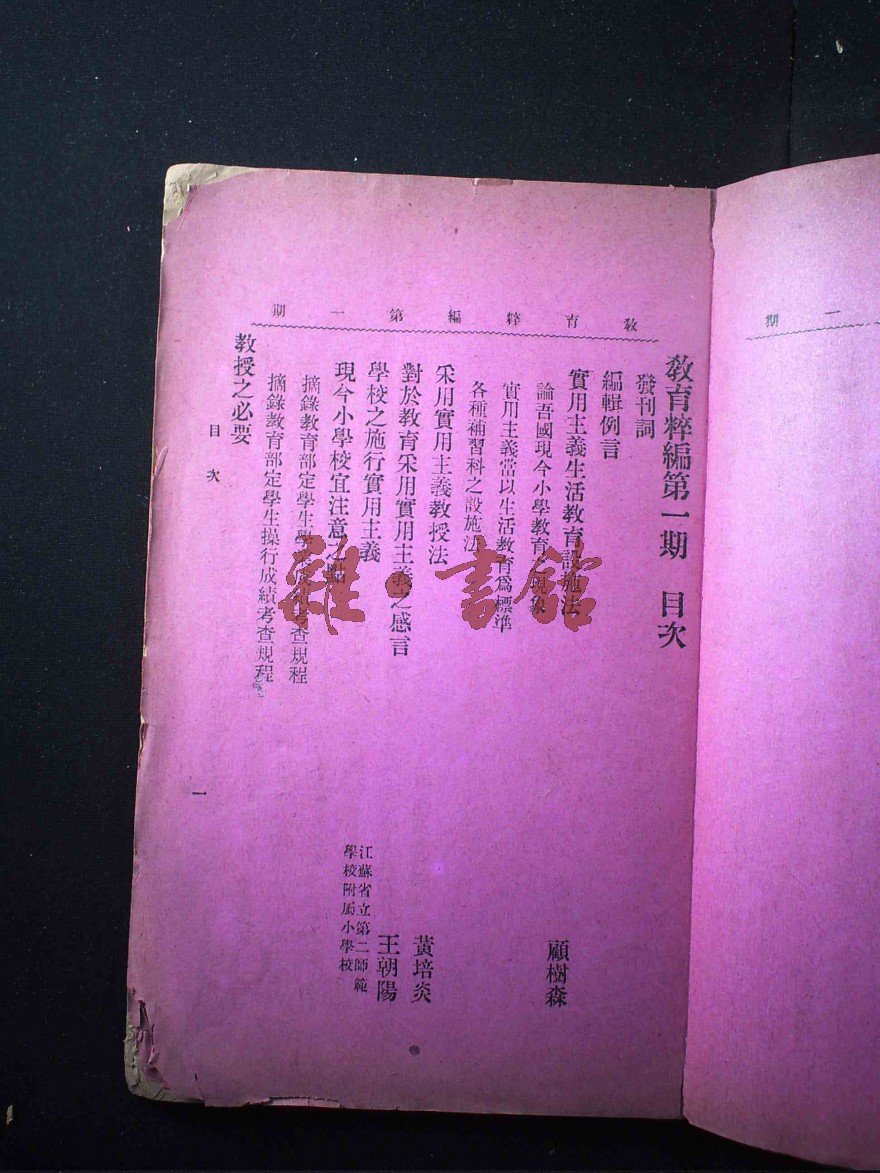 教育粹編第一期
教育粹編第一期 目次
發刊詞
編輯例言
實用主義生活教育設施法 顧樹森
論吾國現今小學教育之現象
實用主義當以生活教育爲標準
各種補習科之設施法
采用實用主義教授法
對於教育采用實用主義之感言 黃培炎
學校之施行實用主義 王朝陽
現今小學校宜注意之點 江蘇省立第二師範
學校附屬小學校
摘錄教育部定學生學業成績考查規程
摘錄教育部定學生操行成績考查規程
教授之必要
目次
一
一期
雜·書館